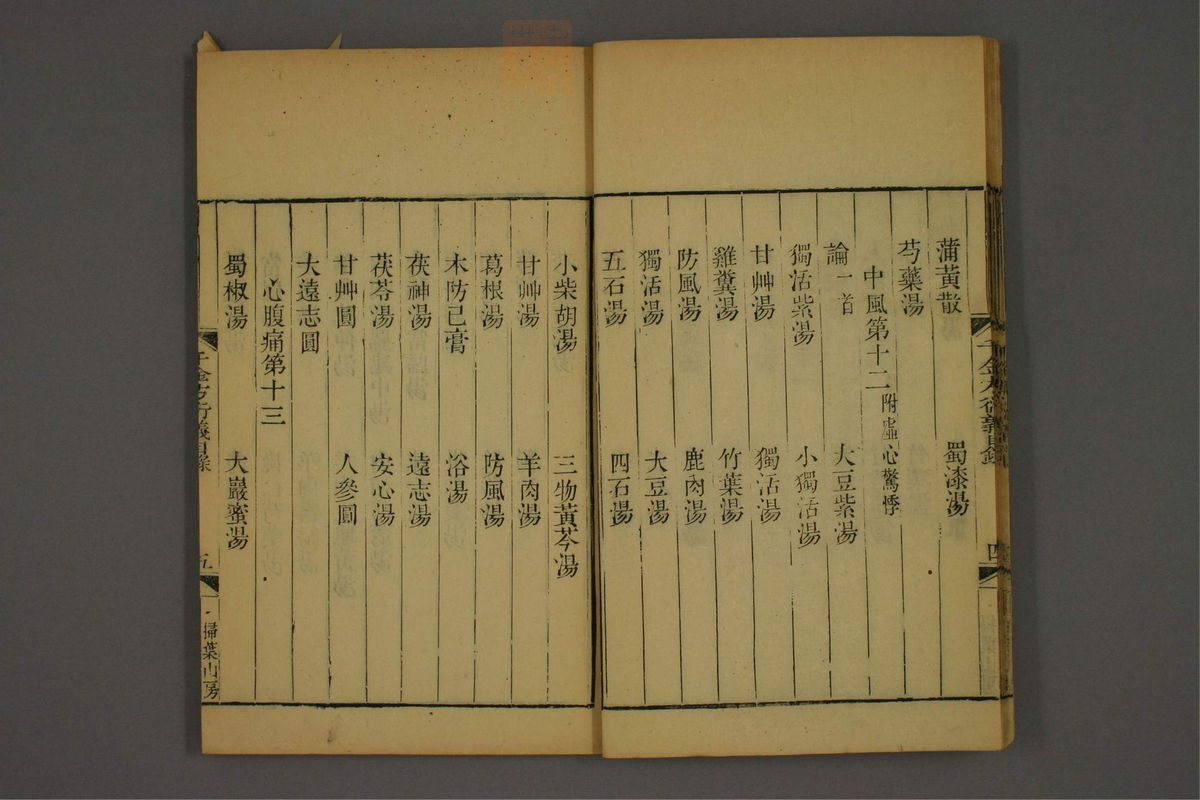 千金方衍義目錄
四
蒲黃散 蜀漆湯
芍藥湯
中風第十二附虛心驚悸
論一首 大豆紫湯
獨活紫湯 小獨活湯
甘艸湯 獨活湯
雞糞湯 竹葉湯
防風湯 鹿肉湯
獨活湯 大豆湯
五石湯 四石湯
小柴胡湯 三物黃芩湯
甘艸湯 羊肉湯
葛根湯 防風湯
木防己膏 浴湯
茯神湯 遠志湯
茯苓湯 安心湯
甘艸圓 人參圓
大遠志圓
心腹痛第十三
蜀椒湯 大巖蜜湯
千金方衍義目錄
五
掃葉山房